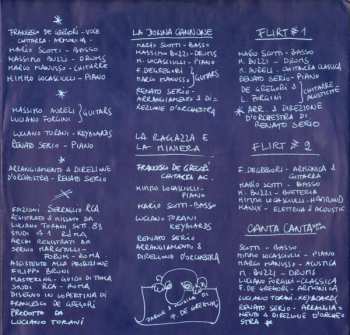 FRANCESCO DE GREGORI - VOCE
CHITARRA - ARMONICA -
MARIO SCOTTI - BASSO
MASSIMO BUZZI - DRUMS
MARIO MANUSSO - CHITARRE
MIMMO LOCASCIULLI - PIANO
MASSIMO AURELI
LUCIANO FORLINI
GUITARS
LUCIANO TORANI - KEYBOARDS
RENATO SERIO - PIANO
ARRANGIAMENTO & DIREZIONE
D'ORCHESTRA - RENATO SERIO
EDIZIONI SERRALIS RCA
REGISTRATO & MISSATO DA
LUCIANO TORANI SETT. 83
STUDI 1 ROMA
ARCHI REGISTRATI DA
SERGIO MARCOTULLI -
FORUM - ROMA
ASSISTENTE ALLA POSIZIONE
FILIPPO BRUNI
MASTERING - GUIDO DI TOMA
STUDI RCA - ROMA
DISEGNO IN COPERTINA DI
FRANCESCO DE GREGORI
PRODOTTO DA
LUCIANO TORANI
LA DONNA CANNONE
MARIO SCOTTI - BASSO
MASSIMO BUZZI - DRUMS
M. LOCASCIULLI - PIANO
F. DE GREGORI
MARIO MANUSSO
GUITARS
RENATO SERIO -
ARRANGIAMENTI & DI-
REZIONE D'ORCHESTRA
LA RAGAZZA E
LA MINIERA
FRANCESCO DE GREGORI
CHITARRA AC.
MIMMO LOCASCIULLI -
PIANO
MARIO SCOTTI - BASSO
LUCIANO TORANI
KEYBOARDS
RENATO SERIO
ARRANGIAMENTO &
DIREZIONE D'ORCHESTRA
PAROLE & MUSICA DI
F. DE GREGORI
FLIRT #1
MARIO SCOTTI - BASSO
M. BUZZI - DRUMS
M. AURELI - CHITARRA CLASSICA
RENATO SERIO - PIANO
F. DE GREGORI
L. FORLINI
CHITARRE
ACUSTICHE
ARR. & DIREZIONE
D'ORCHESTRA DI
RENATO SERIO
FLIRT #2
F. DE GREGORI - ARMONICA &
CHITARRA
MARIO SCOTTI - BASSO
M. BUZZI - BATTERIA
MIMMO LOCASCIULLI - HAMMOND
MANUX - ELETTRICA & ACUSTIC
CANTA CANTA
SCOTTI - BASSO
MIMMO LOCASCIULLI - PIANO
MARIO MANUSSO - ACUSTICA
M. BUZZI - DRUMS
LUCIANO FORLINI - CLASSICA
F. DE GREGORI - ARMONICA
LUCIANO TORANI - KEYBOARDS
RENATO SERIO - ARRANGIA-
MENTO & DIREZIONE D'ORCHE
STRA